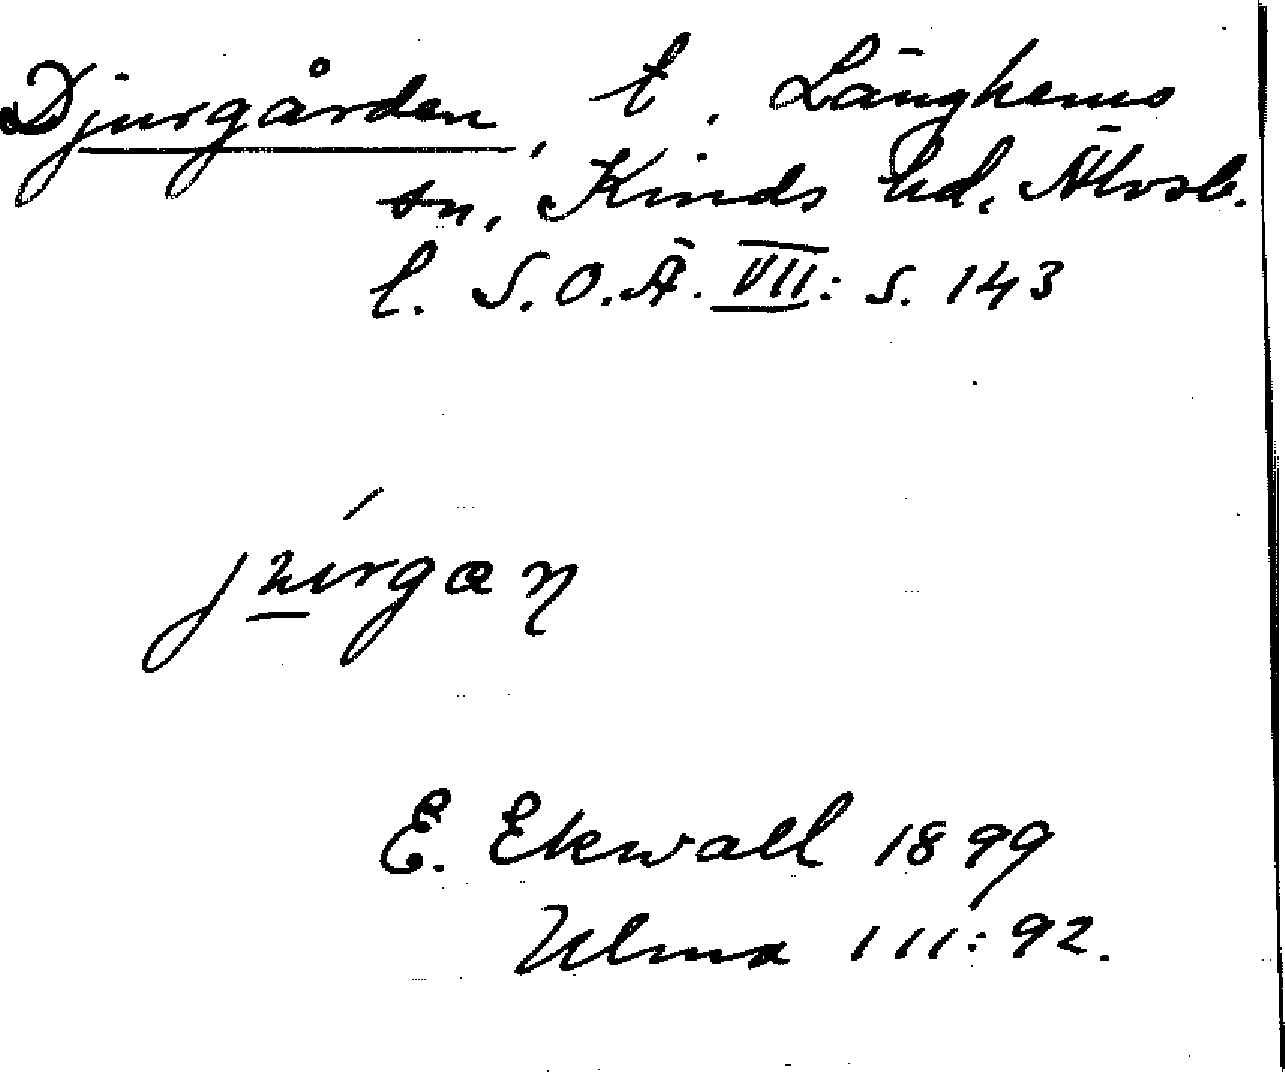 Djurgården, t., Länghems
sn, Kinds hd, Älvsb.
l. S.O.Ä. VII: s. 143
E. Ekwall 1899
Ulma 111:92.